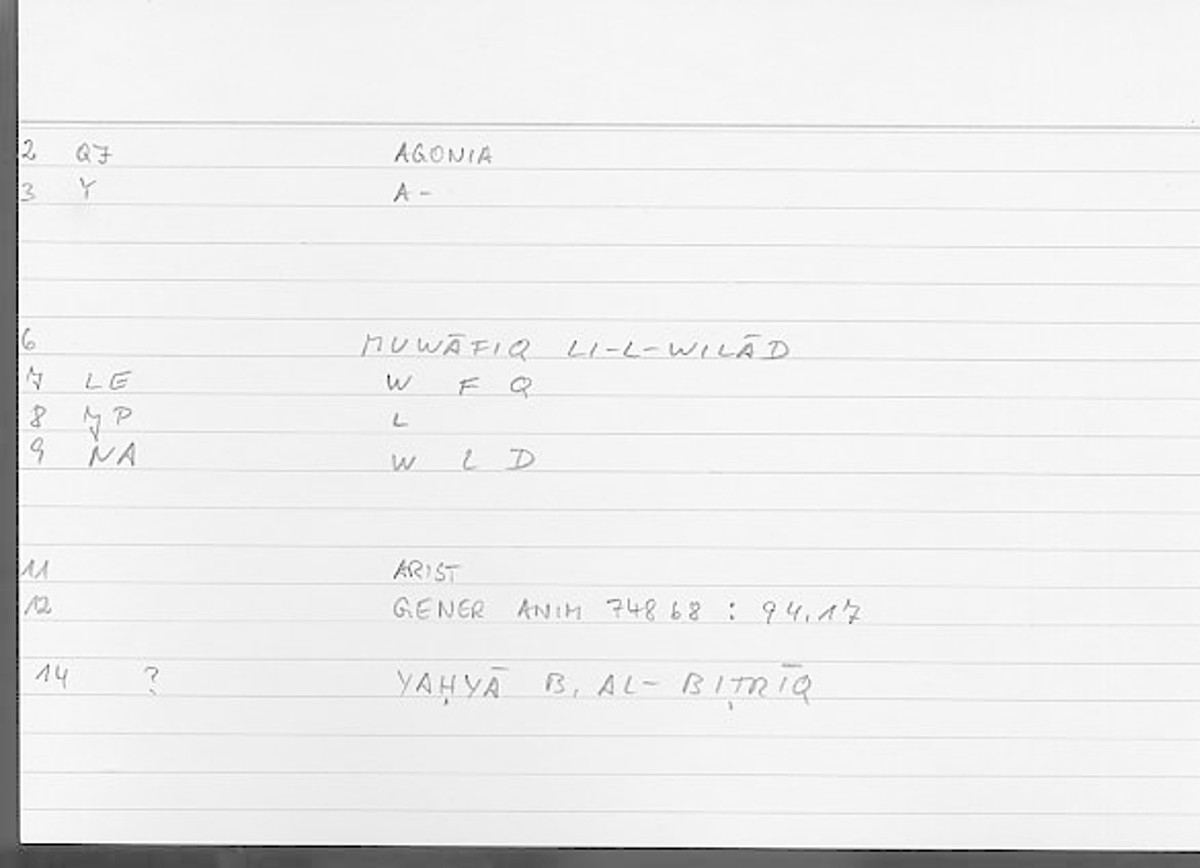 2 QF AGONIA
3 Y A-
6 MUWĀFIQ LI-L-WILĀD
7 LE W F Q
8 JP L
9 NA W L D
11 ARIST
12 GENER ANIM 748 b8 : 94.17
14 ? YAḤYĀ B. AL-BIṬRĪQ